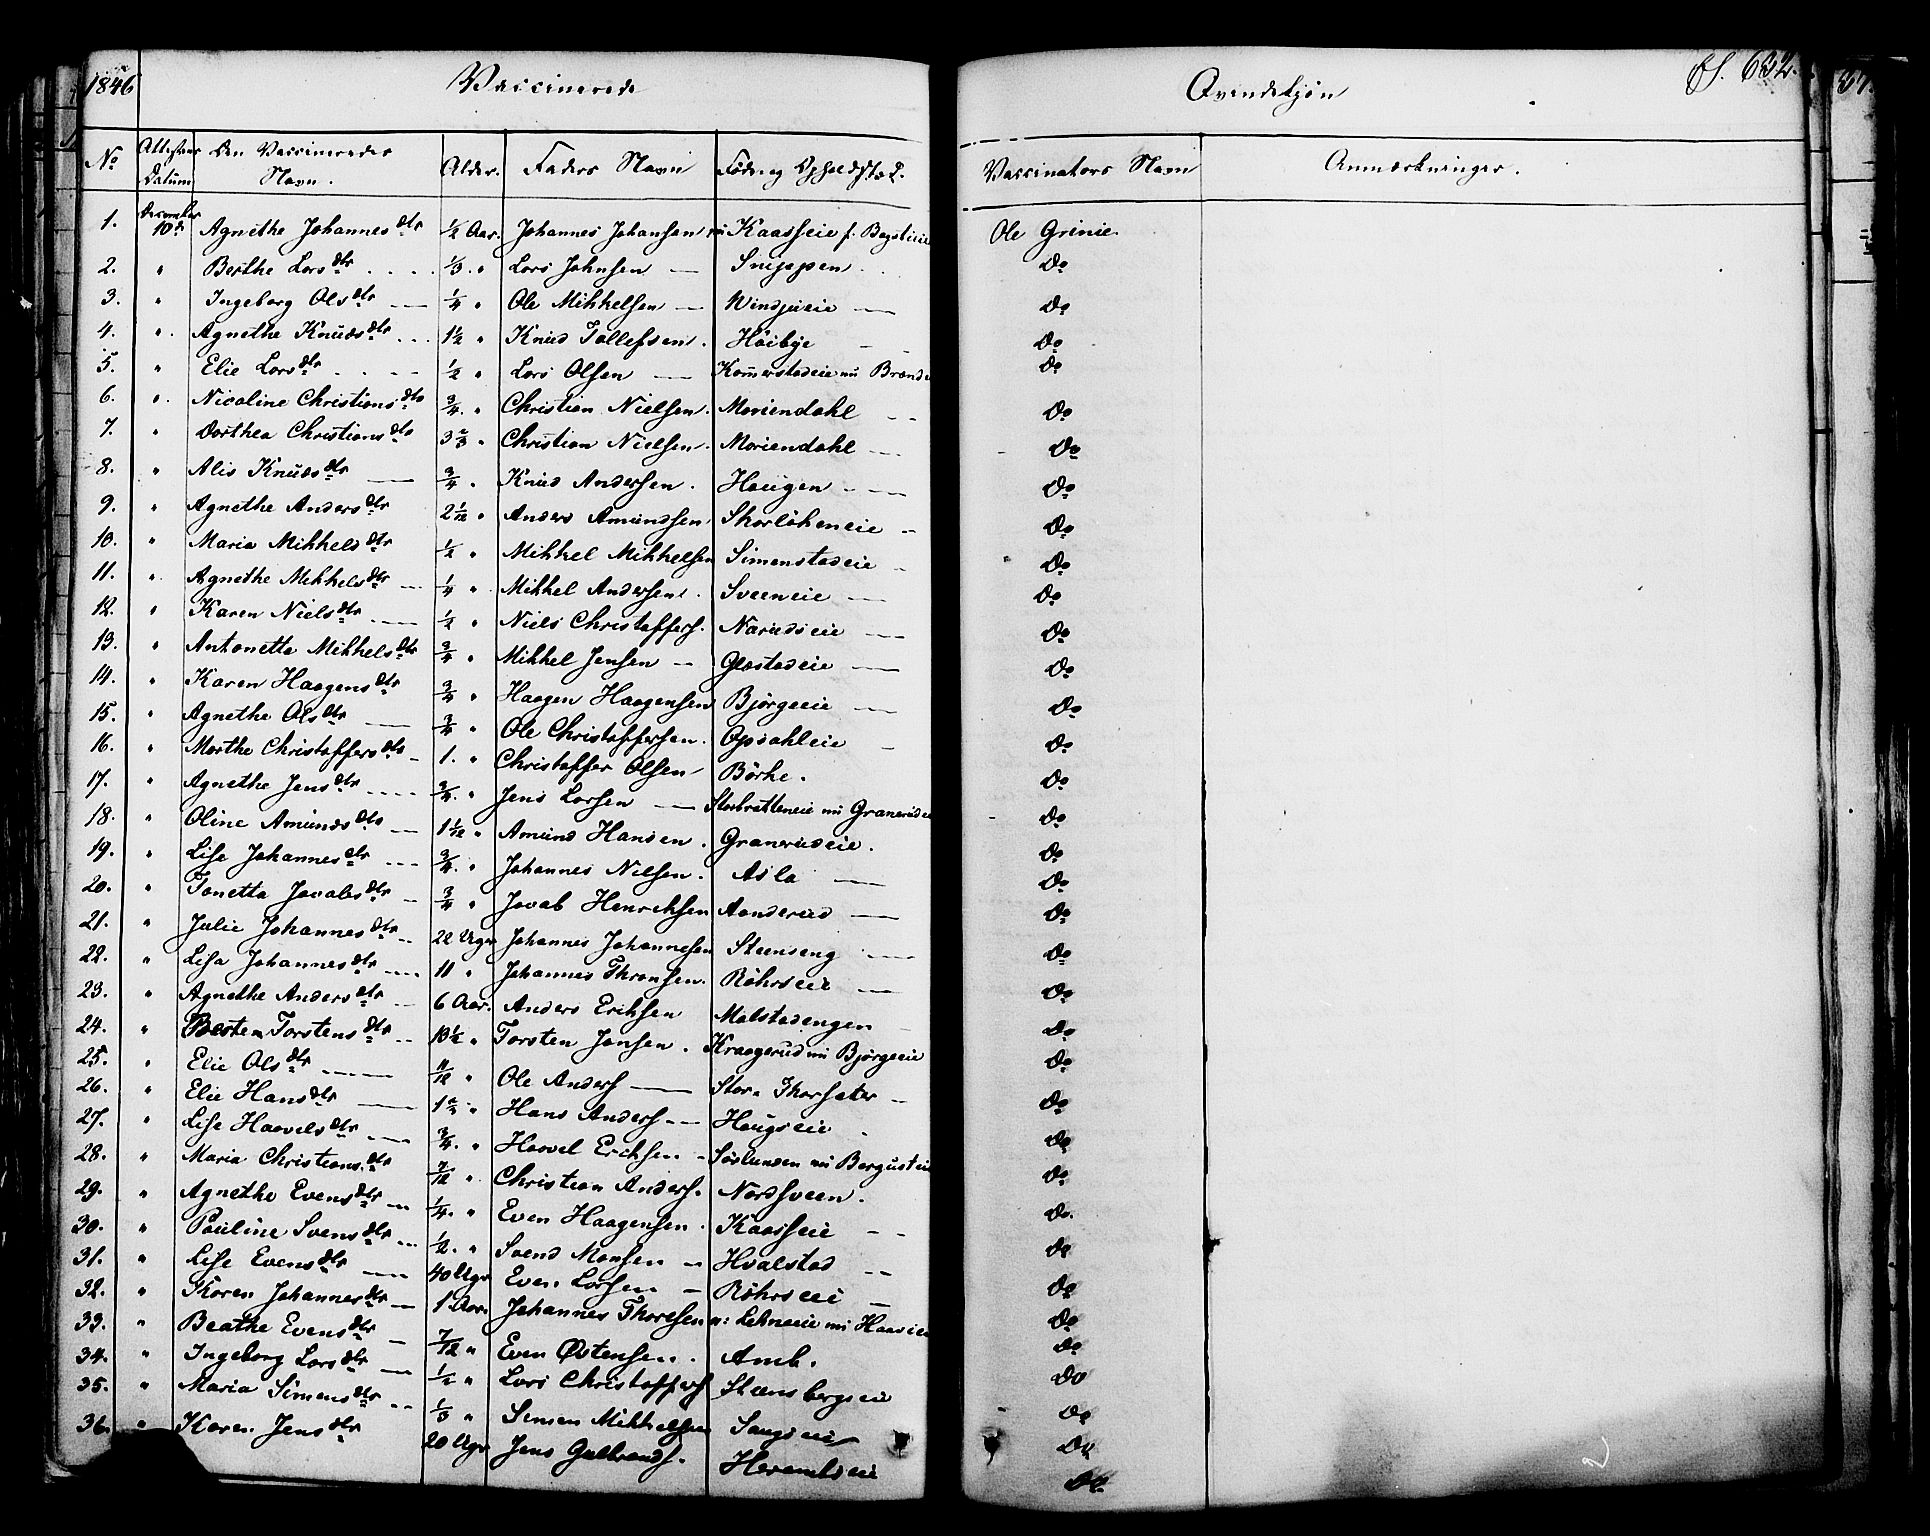 1846 Vaccinerede Qvindekjön Pf. 632.
No Attestens Datum Den Vaccineredes Navn. Alder. Faders Navn Föde og Opholdssted. Vaccinators Navn Anmærkninger.
1. December 10de Agnethe Johannesdtr ½ Aar. Johannes Johansen Kaasseie f. Ole Grinie.
2. " Berthe Larsdtr 1/3 " Lars Johnsen — Snippen Do
3. " Ingeborg Olsdtr — ¼ " Ole Mikkelsen — Windjueie — Do
4. " Agnethe Knudsdtr 1½ " Knud Tollefsen. Höibye Do
5. " Elie Larsdtr ½ " Lars Olsen — Komerstadeie Do
6. " Nicoline Christiansdtr ¾ " Christian Nielsen. Moriendahl Do
7. " Dorthea Christiansdtr 3⅔ " Christian Nielsen. Moriendahl Do
8. " Alis Knudsdtr — ¾ " Knud Andersen. Haugen Do
9. " Agnethe Andersdtr 2 1/12 " Anders Amundsen Skorlökeneie Do
10. " Maria Mikkelsdtr ½ " Mikkel Mikkelsen Simenstadeie Do
11. " Agnethe Mikkelsdtr ¼ " Mikkel Andersen. Sveeneie — Do
12. " Karen Nielsdtr ½ " Niels Christoffers. Narudseie — Do
13. " Antonetta Mikkelsdtr ¾ " Mikkel Jensen — Glæstadeie — Do
14. " Karen Haagensdtr ¾ " Haagen Haagensen Bjørgeeie — Do
15. " Agnethe Olsdtr — ¾ " Ole Christoffersen. Opsahleie Do
16. " Marthe Christoffersdtr 1. " Christoffer Olsen Börke. Do
17. " Agnethe Jensdtr ¾ " Jens Larsen — Storbratteneie Do
18. " Oline Amundsdtr — 1 1/12 " Amund Hansen. Granerudeie. Do
19. " Lise Johannesdtr ¾ " Johannes Nilsen. Asla — Do
20. " Tonetta Jacobsdtr ¾ " Jacob Henrichsen Aanderud — Do
21. " Julie Johannesdtr 22 Uger Johannes Johannesen Steenseng Do
22. " Lisa Johannesdtr 11 " Johannes Thronsen. Röhrseie — Do
23. " Agnethe Andersdtr 6 Aar. Anders Erichsen Malstadengen Do
24. " Torstensdtr 10½ " Torsten Jonsen. Kraagerud Bjørgeeie Do
25. " Elie Olsdtr 11/12 " Ole Anders — Stor Do
26. " Elie Hansdtr — 1⅔ " Hans Anders Haugseie Do
27. " Lise Haavelsdtr ¾ " Haavel Erichsen Sörlunden Do
28. " Maria Christiansdtr 7/12 " Christian Anders. Nordsveen. Do
29. " Agnethe Evensdtr ¼ " Even Haagensen. Kaasseie Do
30. " Pauline Svensdtr ½ " Svend Monsen Hvalstad Do
31. " Lise Evensdtr — 40 Uger Even Larsen — Röhrseie Do
32. " Karen Johannesdtr — 1 Aar. Johannes Thoresen Do
33. " Beathe Evensdtr — 7/12 " Even Østensen. Amb. Do
34. " Ingeborg Larsdtr — ½ " Lars Christoffers Steensbergseie Do
35. " Maria Simensdtr 1/3 " Simen Mikkelsen Saugseie Do
36. " Karen Jensdtr 20 Uger Jens Gulbrands. Do
Do